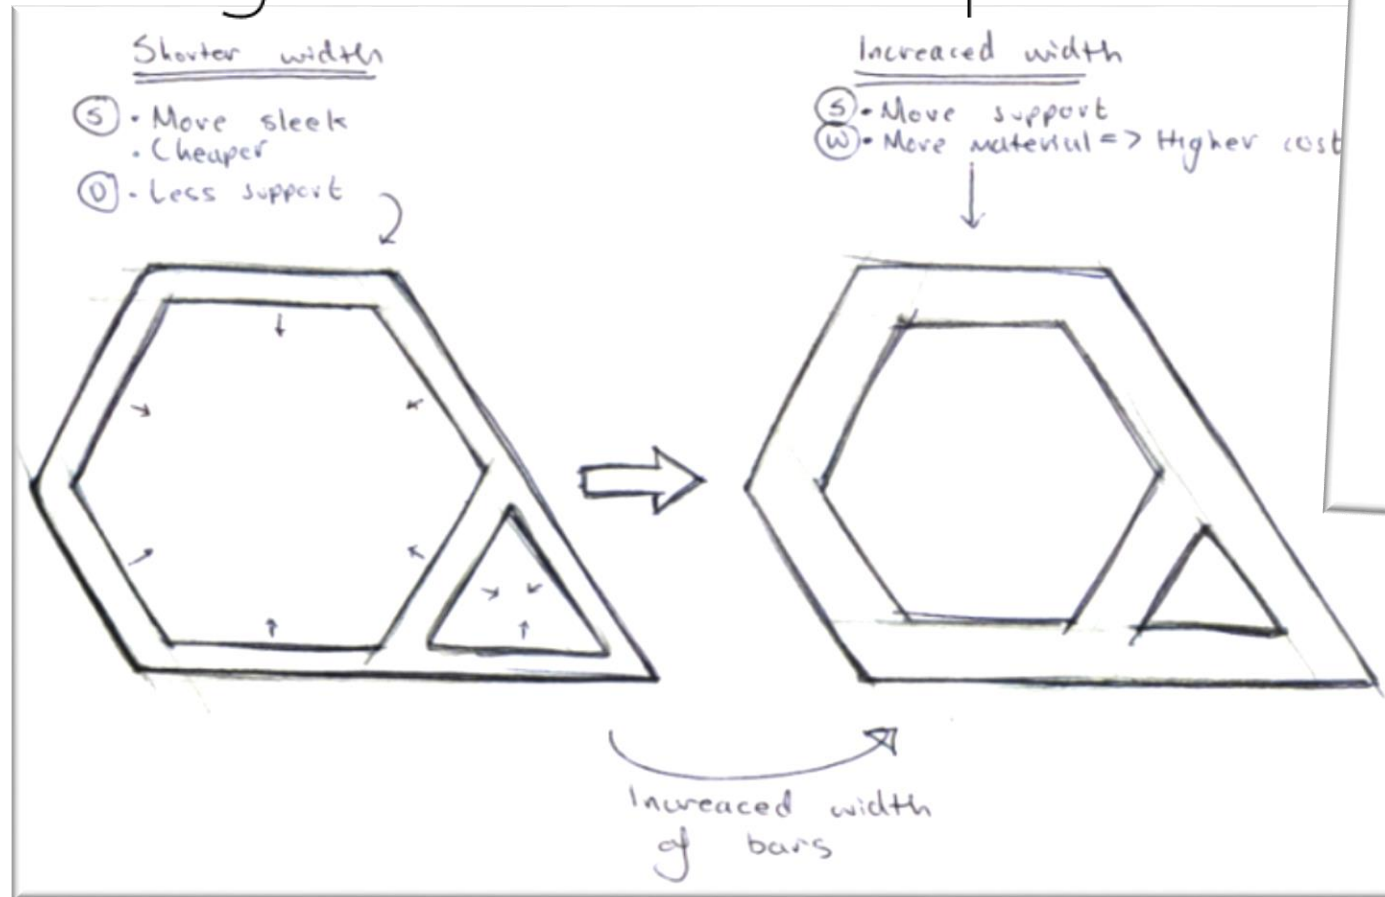 Shorter width
(S) • More sleek
• Cheaper
(D) • Less support
Increaced width
(S) • More support
(W) • More material => Higher cost
Increaced width
of bars